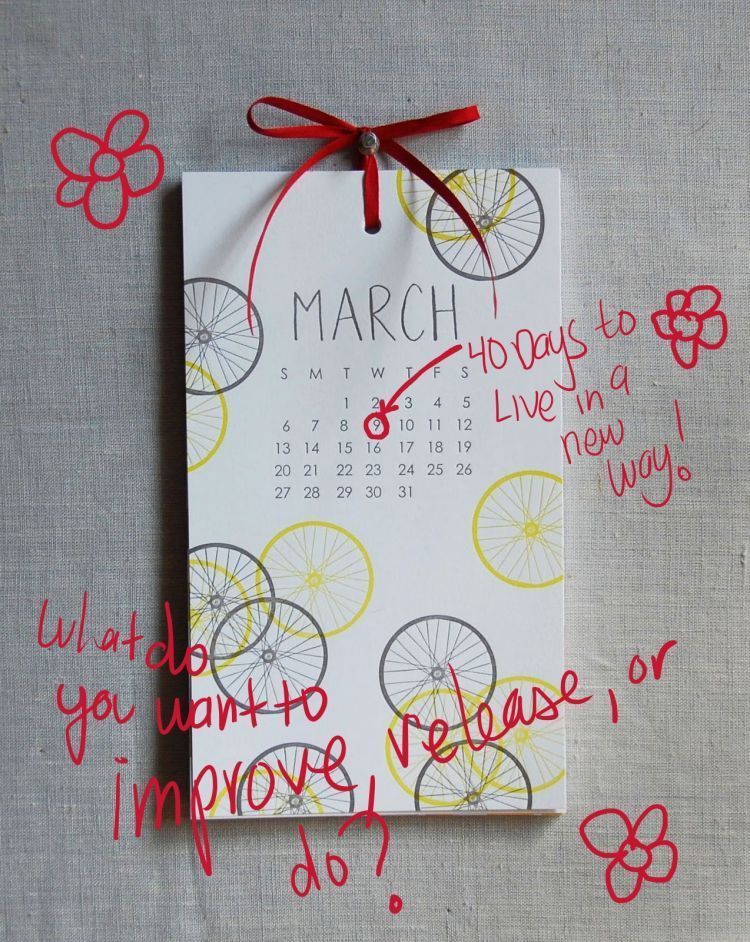 MARCH
S M T W T F S
1 2 3 4 5
6 7 8 9 10 11 12
13 14 15 16 17 18 19
20 21 22 23 24 25 26
27 28 29 30 31
40 Days to
Live in a
new
way!
What do
you want to
improve, release, or
do?